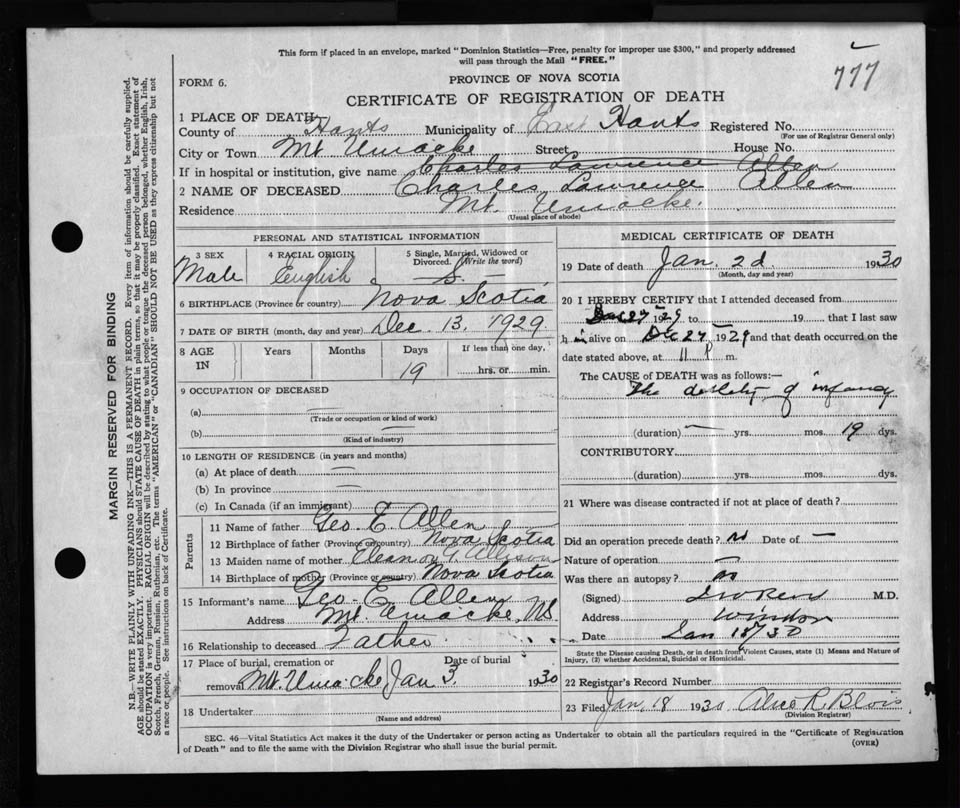 777
This form if placed in an envelope, marked "Dominion Statistics—Free, penalty for improper use $300," and properly addressed
will pass through the Mail "FREE."
FORM 6.
PROVINCE OF NOVA SCOTIA
CERTIFICATE OF REGISTRATION OF DEATH
1 PLACE OF DEATH
County of Hants Municipality of East Hants Registered No.
(For use of Registrar General only)
City or Town Mt Uniacke Street House No.
If in hospital or institution, give name Charles Lawrence Allen
2 NAME OF DECEASED Charles Lawrence Allen
Residence Mt. Uniacke.
(Usual place of abode)
PERSONAL AND STATISTICAL INFORMATION
3 SEX 4 RACIAL ORIGIN 5 Single, Married, Widowed or Divorced. (Write the word)
Male English S.
6 BIRTHPLACE (Province or country) Nova Scotia
7 DATE OF BIRTH (month, day and year) Dec. 13, 1929.
8 AGE IN Years Months Days If less than one day,
19 hrs. or min.
9 OCCUPATION OF DECEASED
(a) —
(Trade or occupation or kind of work)
(b) —
(Kind of industry)
10 LENGTH OF RESIDENCE (in years and months)
(a) At place of death —
(b) In province —
(c) In Canada (if an immigrant) —
Parents
11 Name of father Geo E. Allen
12 Birthplace of father (Province or country) Nova Scotia
13 Maiden name of mother Eleanor G. Allison
14 Birthplace of mother (Province or country) Nova Scotia
15 Informant's name Geo. E. Allen
Address Mt. Uniacke, N.S.
16 Relationship to deceased Father
17 Place of burial, cremation or Date of burial
removal Mt. Uniacke Jan 3. 1930
18 Undertaker
(Name and address)
MEDICAL CERTIFICATE OF DEATH
19 Date of death Jan. 2d. 1930
(Month, day and year)
20 I HEREBY CERTIFY that I attended deceased from
Dec 27 1929 to 19 that I last saw
h im alive on Dec 27 1929 and that death occurred on the
date stated above, at 11 P m.
The CAUSE of DEATH was as follows:—
The debility of infancy
(duration) — yrs. mos. 19 dys.
CONTRIBUTORY
(duration) yrs. mos. dys.
21 Where was disease contracted if not at place of death?
Did an operation precede death? no Date of —
Nature of operation —
Was there an autopsy? no
(Signed) M.D.
Address Windsor
Date Jan 18/30
State the Disease causing Death, or in death from Violent Causes, state (1) Means and Nature of
Injury, (2) whether Accidental, Suicidal or Homicidal.
22 Registrar's Record Number
23 Filed Jan. 18 1930 Alice R. Blois
(Division Registrar)
SEC. 46—Vital Statistics Act makes it the duty of the Undertaker or person acting as Undertaker to obtain all the particulars required in the "Certificate of Registration
of Death" and to file the same with the Division Registrar who shall issue the burial permit.
(OVER)
MARGIN RESERVED FOR BINDING
N.B.—WRITE PLAINLY WITH UNFADING INK—THIS IS A PERMANENT RECORD. Every item of information should be carefully supplied.
AGE should be stated EXACTLY. PHYSICIANS should STATE CAUSE OF DEATH in plain terms, so that it may be properly classified. Exact statement of
OCCUPATION is very important. RACIAL ORIGIN will be described by stating to what people or tongue the deceased person belonged, whether English, Irish,
Scotch, French, German, Russian, Ruthenian, etc. The terms "AMERICAN" or "CANADIAN" SHOULD NOT BE USED as they express citizenship but not
a race or people. See instructions on back of Certificate.